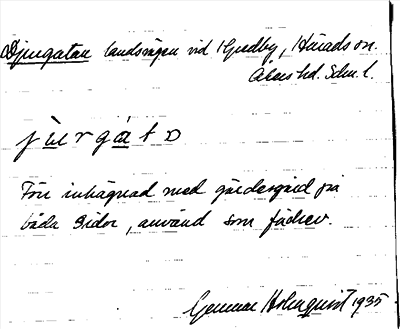 Djurgatan landsvägen vid Gredby, Härads sn.
Åkers hd. Sdm. l.
jʉrgatɷ
Förr inhägnad med gärdesgård på
båda sidor, använd som fädrev.
Gunnar Holmquist 1935